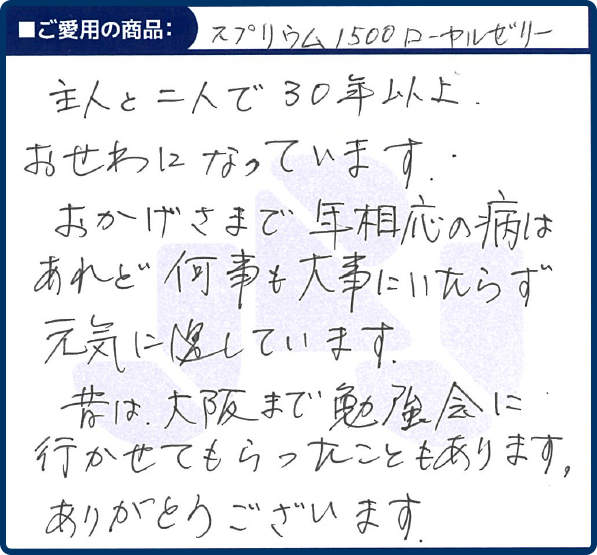 ■ご愛用の商品: スプリウム1500ローヤルゼリー
主人と二人で30年以上.
おせわになっています.
おかげさまで年相応の病は
あれど何事も大事にいたらず
元気に過しています.
昔は.大阪まで勉強会に
行かせてもらったこともあります。
ありがとうございます.